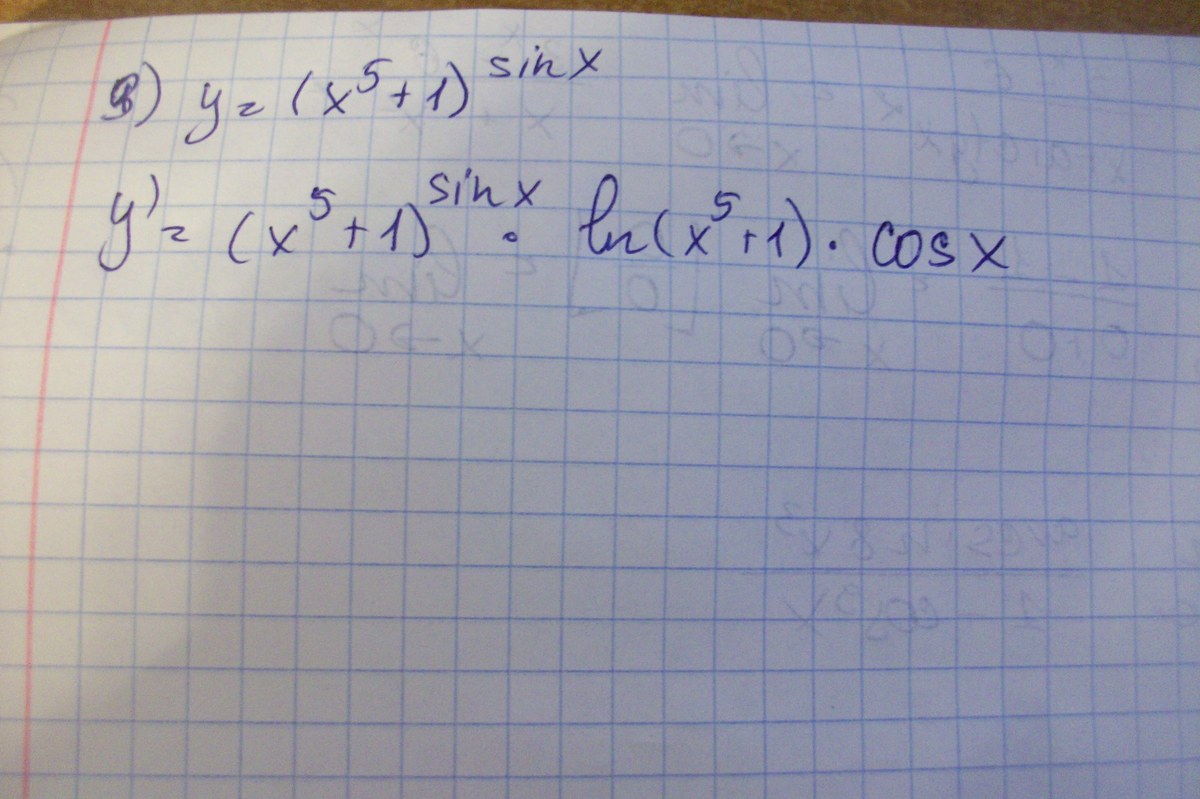 y = (x^5+1)^sin x
y' = (x^5+1)^sin x · ln(x^5+1) · cos x